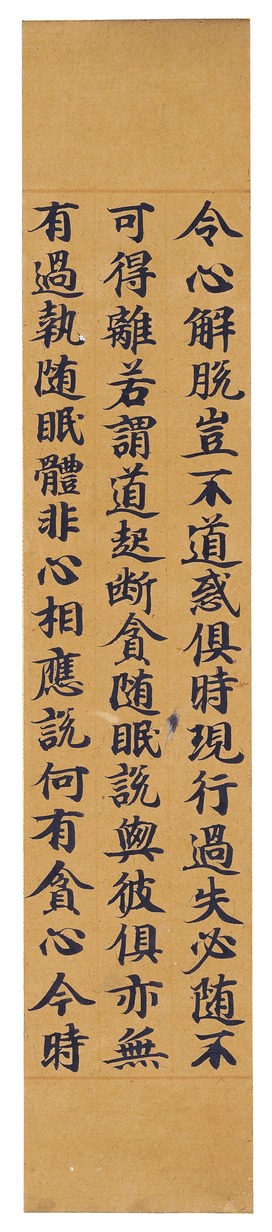 令心解脱豈不道惑俱時現行過失必随不
可得離若謂道起断貪随眠説與彼俱亦無
有過執随眠體非心相應説何有貪心今時